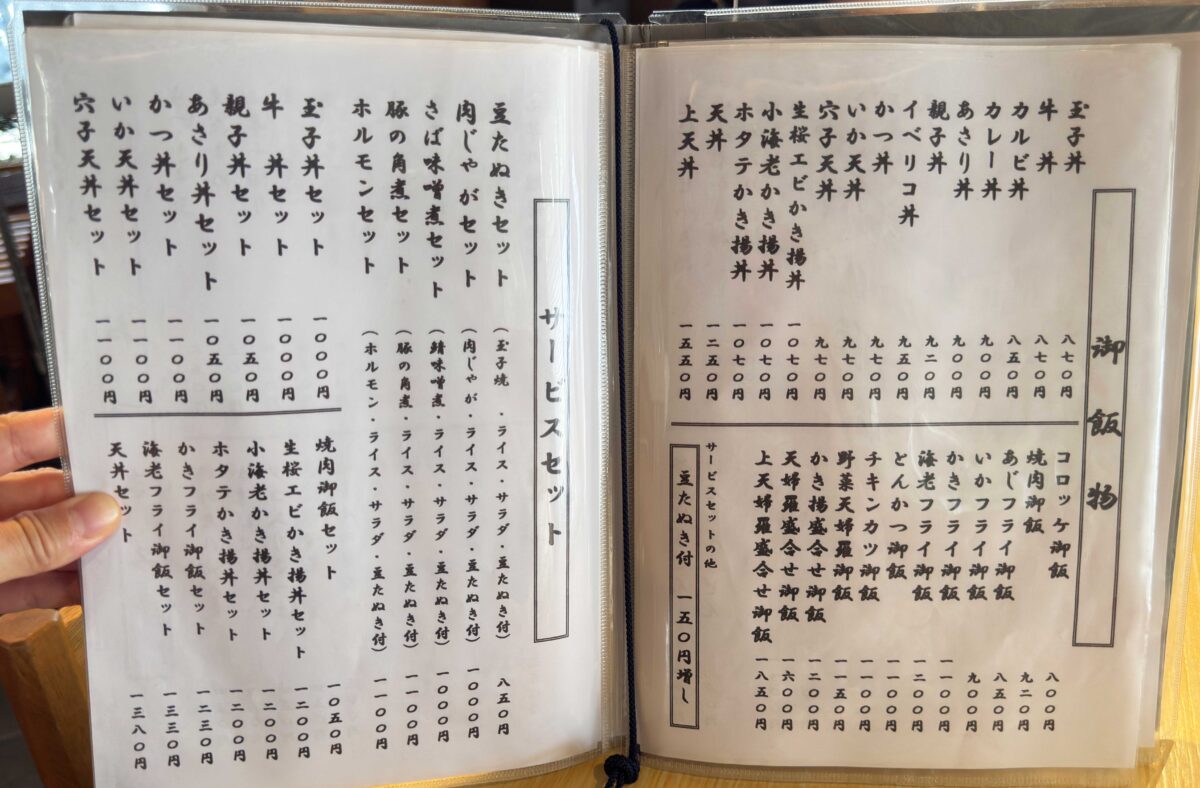 御飯物
玉子丼 八七〇円
牛丼 八七〇円
カルビ丼 八五〇円
カレー丼 九〇〇円
あさり丼 九〇〇円
親子丼 九二〇円
イベリコ丼 九五〇円
かつ丼 九七〇円
いか天丼 九七〇円
穴子天丼 九七〇円
生桜エビかき揚丼 一〇七〇円
小海老かき揚丼 一〇七〇円
ホタテかき揚丼 一〇七〇円
天丼 一二五〇円
上天丼 一五五〇円
コロッケ御飯 八〇〇円
焼肉御飯 九二〇円
あじフライ御飯 八五〇円
いかフライ御飯 九〇〇円
かきフライ御飯 一一〇〇円
海老フライ御飯 一二〇〇円
とんかつ御飯 一一〇〇円
チキンカツ御飯 一一〇〇円
野菜天婦羅御飯 一一五〇円
かき揚盛合せ御飯 一二〇〇円
天婦羅盛合せ御飯 一六〇〇円
上天婦羅盛合せ御飯 一八五〇円
サービスセットの他
豆たぬき付 一五〇円増し
サービスセット
豆たぬきセット (玉子焼・ライス・サラダ・豆たぬき付) 八五〇円
肉じゃがセット (肉じゃが・ライス・サラダ・豆たぬき付) 一〇〇〇円
さば味噌煮セット (鯖味噌煮・ライス・サラダ・豆たぬき付) 一〇〇〇円
豚の角煮セット (豚の角煮・ライス・サラダ・豆たぬき付) 一一〇〇円
ホルモンセット (ホルモン・ライス・サラダ・豆たぬき付) 一一〇〇円
玉子丼セット 一〇〇〇円
牛丼セット 一〇〇〇円
親子丼セット 一〇五〇円
あさり丼セット 一〇五〇円
かつ丼セット 一一〇〇円
いか天丼セット 一一〇〇円
穴子天丼セット 一一〇〇円
焼肉御飯セット 一〇五〇円
生桜エビかき揚丼セット 一二〇〇円
小海老かき揚丼セット 一二〇〇円
ホタテかき揚丼セット 一二〇〇円
かきフライ御飯セット 一二三〇円
海老フライ御飯セット 一三三〇円
天丼セット 一三八〇円